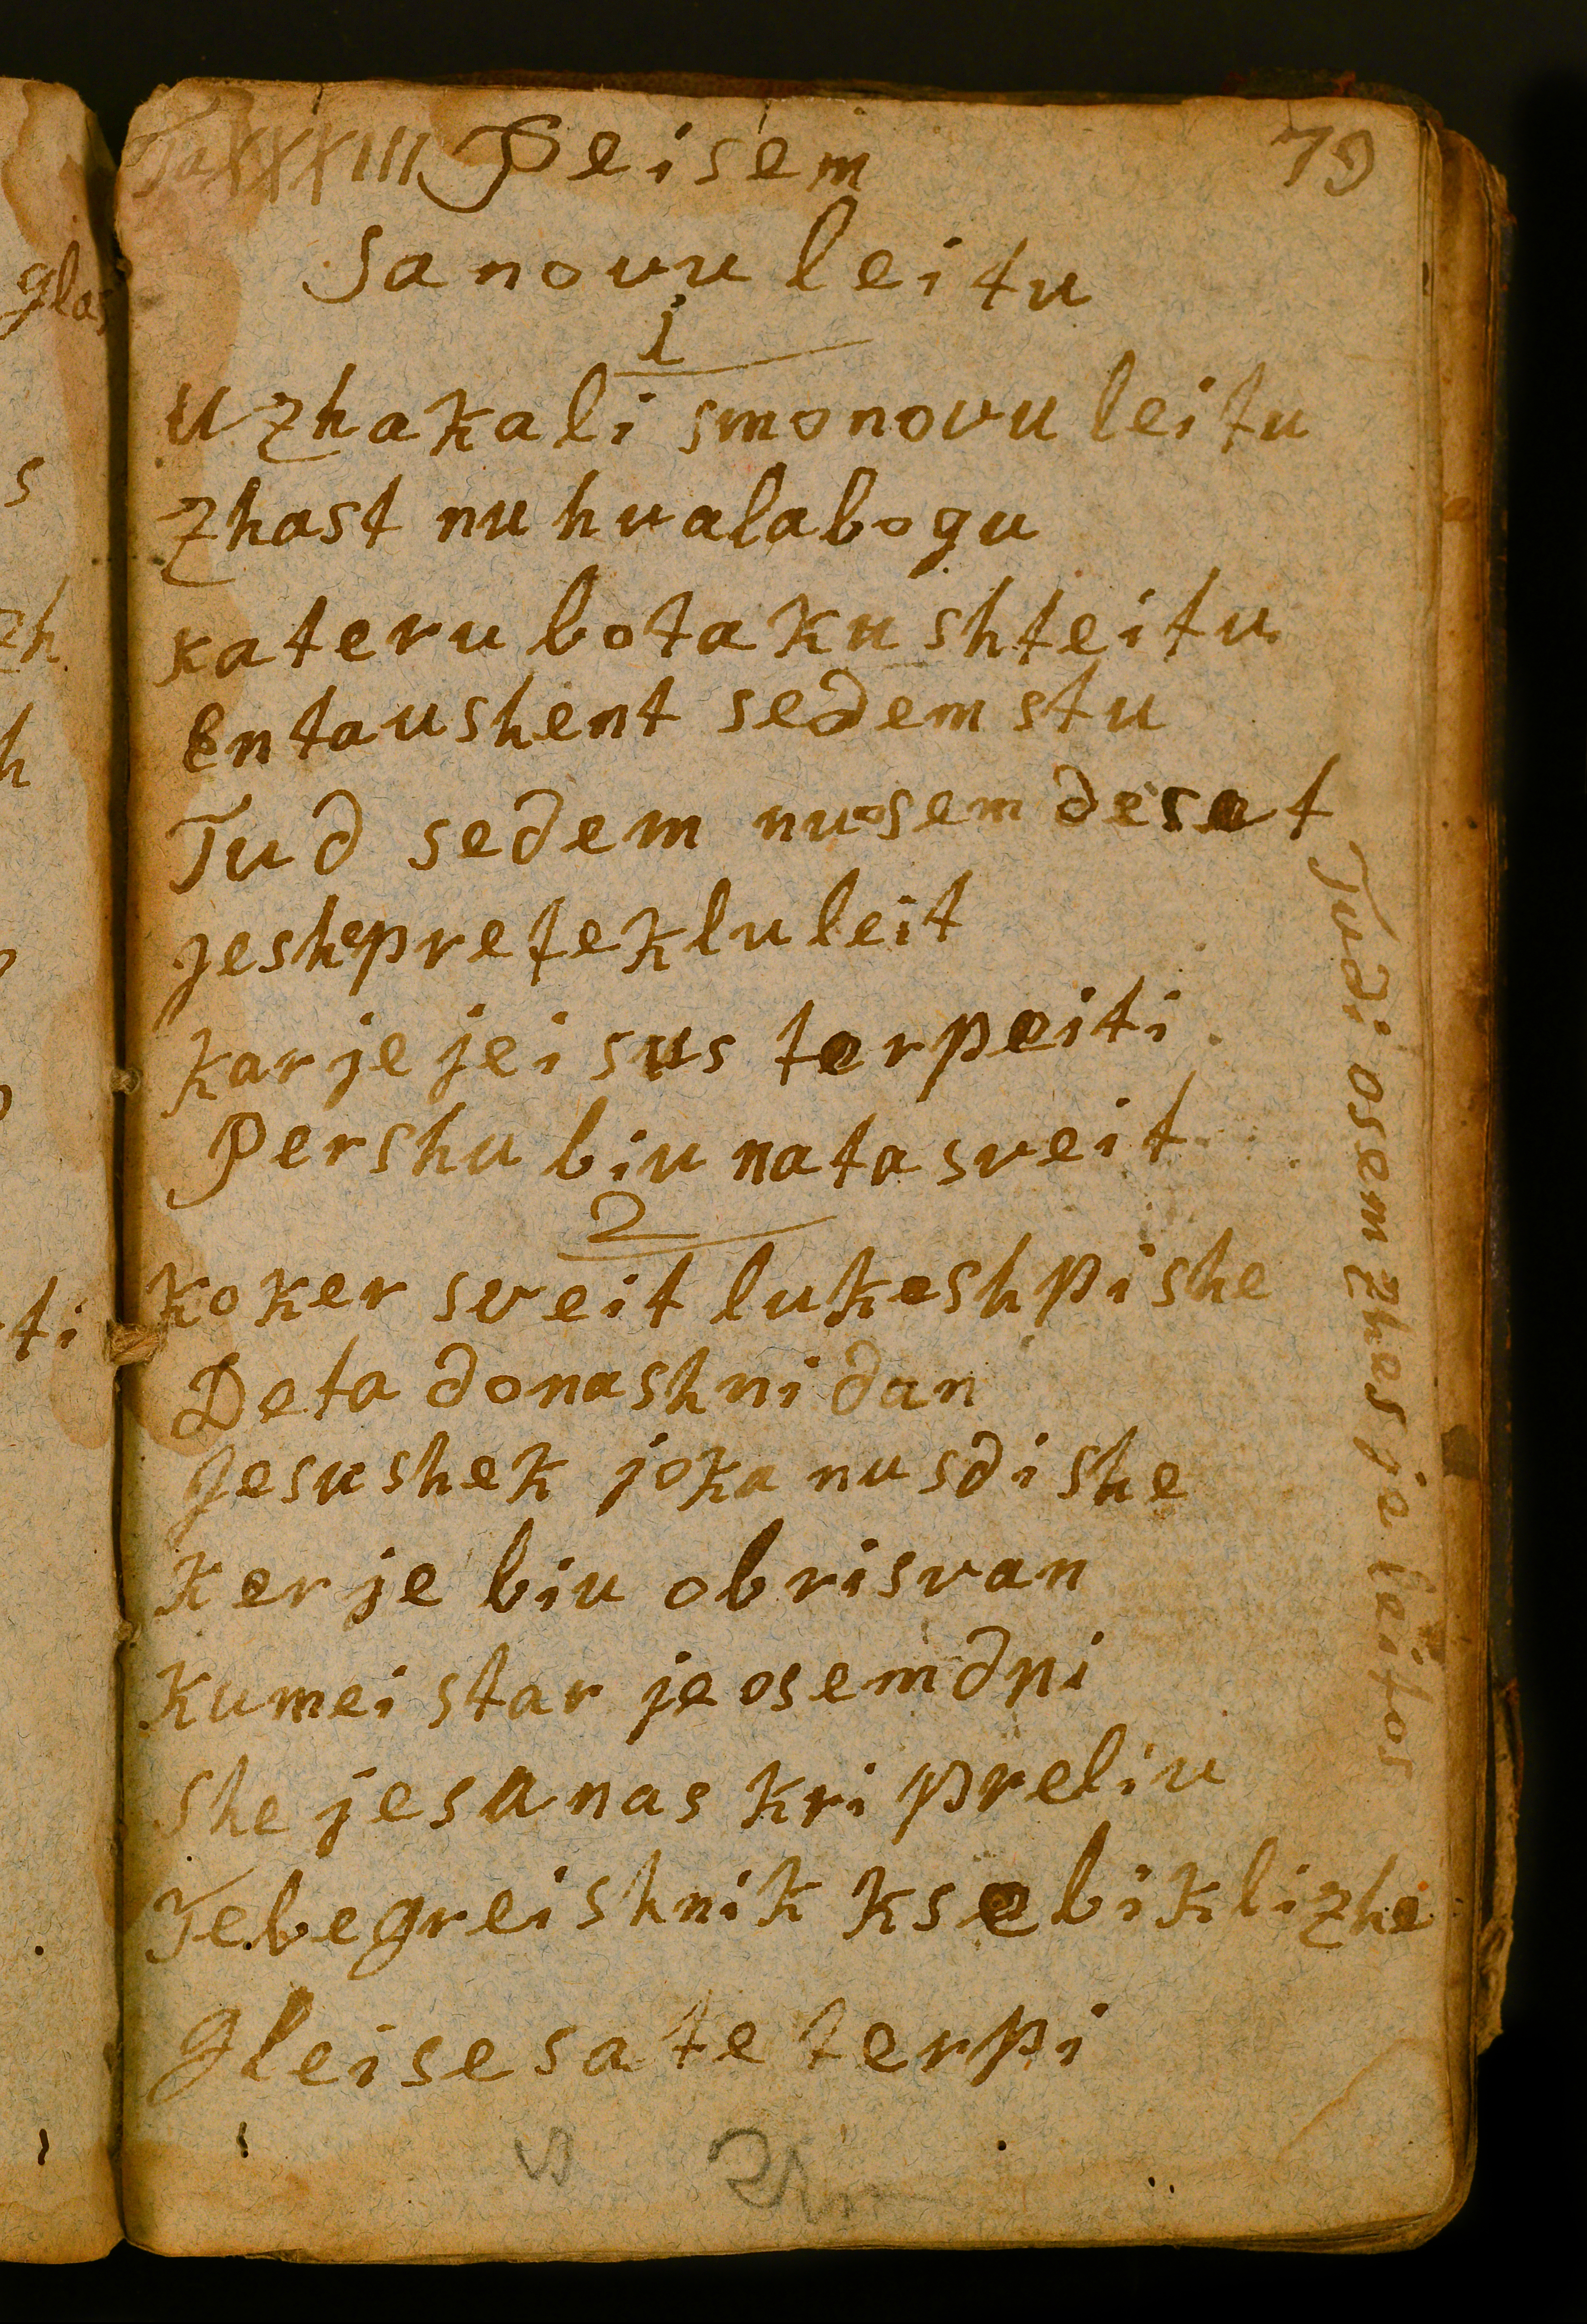 Ta XXXIII Peisem 79
Sanovu leitu
1
Uzhakali smonovu leitu
Zhast nu hvalabogu
kateru botaku shteitu
Entaushent sedem stu
Tud sedem nuosem deset
jeshepreteklu leit
Kar je jeisus terpeiti
Pershu biu natasveit
2
Koker sveit lukeshpishe
Deta donashni dan
Jesushek joka nusdishe
Ker je biu obrisvan
Kumei star je osemdni
She jesanas kri preliu
Tebegreishnik ksebiklizhe
Gleisesate terpi
Tudi osem zhes je leitos
glas
s
zh
h
ti